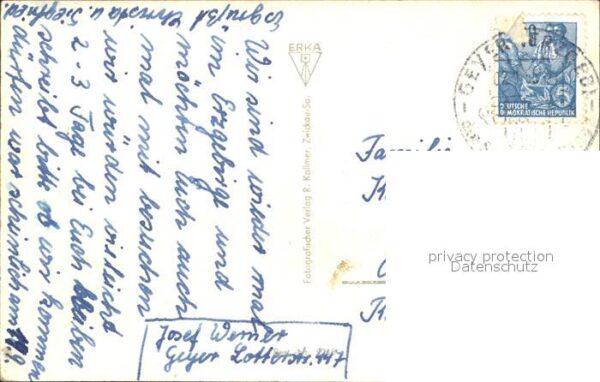 Wir sind wieder mal
im Erzgebirge und
möchten Euch auch
mal mit besuchen
wir würden vileicht
2 - 3 Tage bei Euch bleiben
schreibt bitte ob wir kommen
dürfen warscheinlich am
Es grüßt Christa u. Siegfried
Josef Werner
Geyer Lotterstr. 447
ERKA
Fotografischer Verlag R. Kallmer, Zwickau-Sa.
Familie
GEYER
5
DEUTSCHE
DEMOKRATISCHE REPUBLIK
privacy protection
Datenschutz